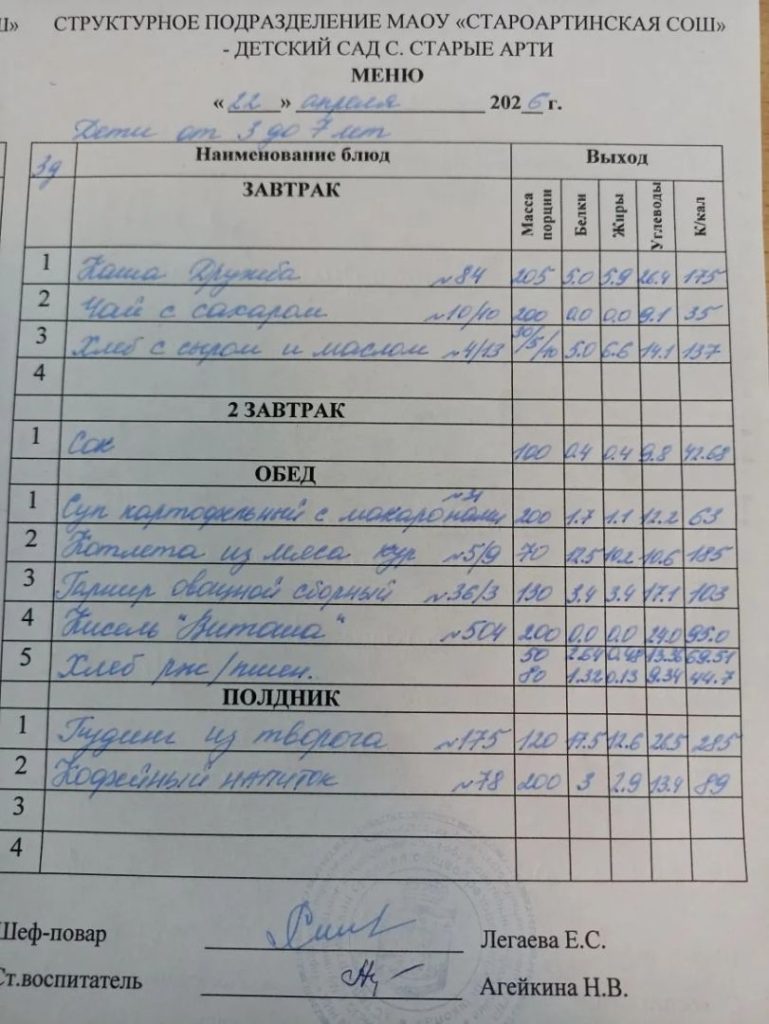 Ш» СТРУКТУРНОЕ ПОДРАЗДЕЛЕНИЕ МАОУ «СТАРОАРТИНСКАЯ СОШ»
- ДЕТСКИЙ САД С. СТАРЫЕ АРТИ
МЕНЮ
«22» апреля 2026 г.
Дети от 3 до 7 лет
3д Наименование блюд Выход
ЗАВТРАК Масса порции Белки Жиры Углеводы К/кал
1 Каша Дружба №84 205 5.0 5.9 26.4 175
2 Чай с сахаром №10/10 200 0.0 0.0 9.1 35
3 Хлеб с сыром и маслом №4/13 30/5/10 5.0 6.6 14.1 137
4
2 ЗАВТРАК
1 Сок 100 0.4 0.4 9.8 42.68
ОБЕД
1 Суп картофельный с макаронами №31 200 1.7 1.1 12.2 63
2 Котлета из мяса кур №5/9 70 12.5 10.2 10.6 185
3 Гарнир овощной сборный №36/3 130 3.4 3.4 17.1 103
4 Кисель "Витоша" №504 200 0.0 0.0 24.0 95.0
5 Хлеб рж/пшен. 50 2.64 0.48 13.36 69.51
80 1.32 0.13 9.34 44.7
ПОЛДНИК
1 Пудинг из творога №175 120 17.5 12.6 26.5 285
2 Кофейный напиток №78 200 3 2.9 13.4 89
3
4
Шеф-повар Легаева Е.С.
Ст.воспитатель Агейкина Н.В.